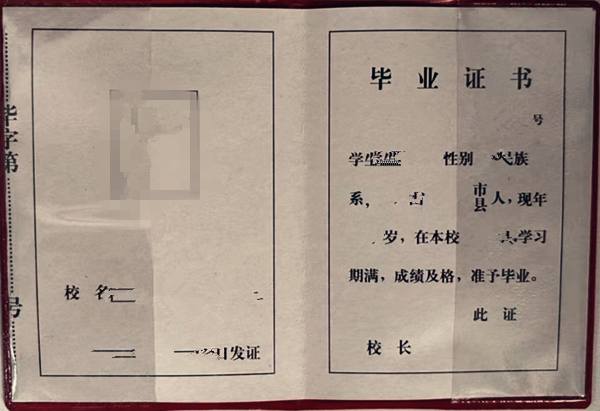 华字第
号
校名
日发证
毕业证书
号
学生 性别 民族
系， 省 市县人，现年
岁，在本校 学习
期满，成绩及格，准予毕业。
此证
校长